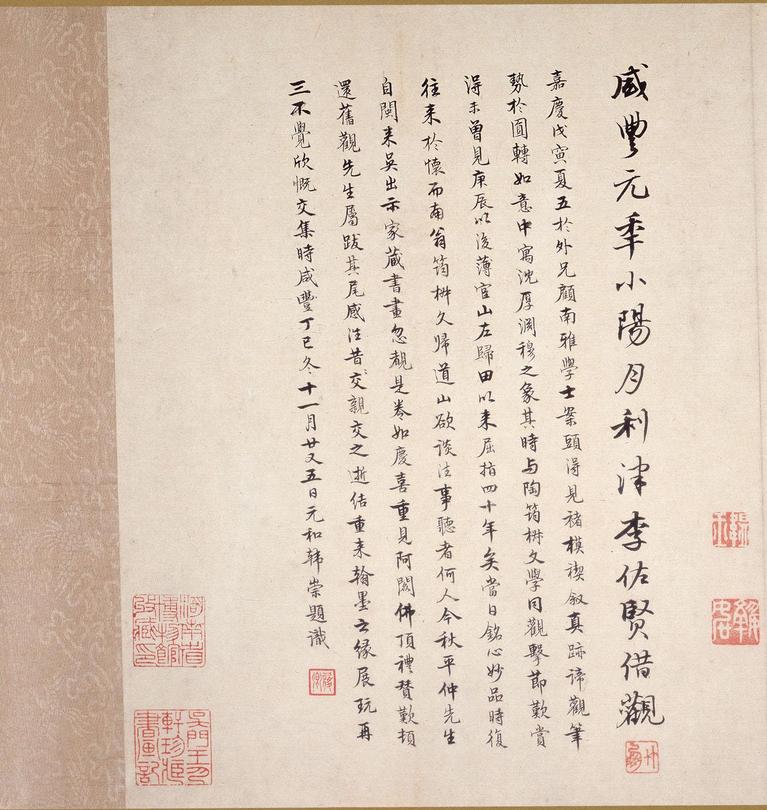 咸豐元年小陽月利津李佐賢借觀
嘉慶戊寅夏五於外兄顧南雅學士案頭得見褚模禊敘真跡諦觀筆
勢於圓轉如意中寓沈厚淵穆之象其時與陶筠椒文學同觀擊節歎賞
得未曾見庚辰以後薄宦山左歸田以來屈指四十年矣當日銘心妙品時復
往來於懷而南翁筠椒久歸道山欲談往事聽者何人今秋平仲先生
自閩來吳出示家藏書畫忽覩是卷如慶喜重見阿閦佛頂禮贊歎頓
還舊觀先生屬跋其尾感往昔交親交之逝結重來翰墨之緣展玩再
三不覺欣慨交集時咸豐丁巳冬十一月廿又五日元和韩崇題識
湖南省博物館收藏印